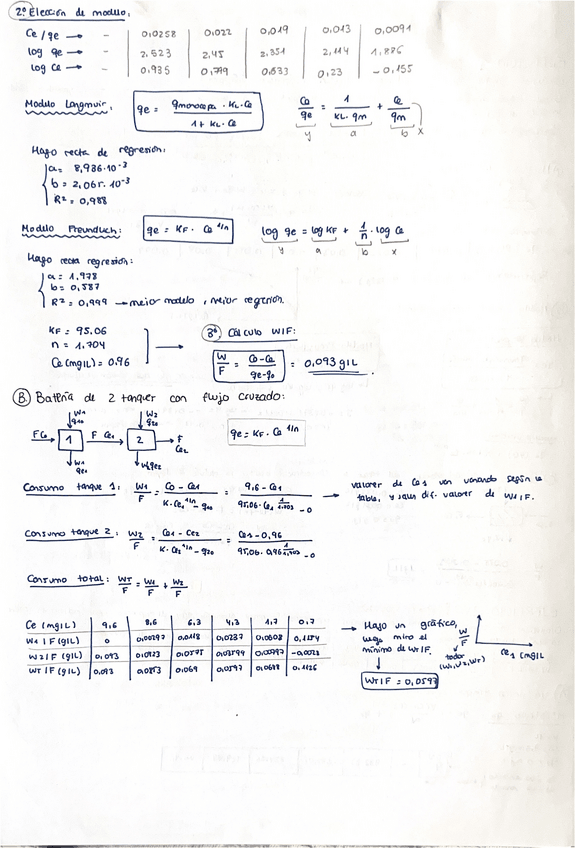 2º Elección de modelo:
Ce/qe → - 0,0258 0,022 0,019 0,013 0,0091
log qe → - 2,523 2,45 2,351 2,114 1,886
log Ce → - 0,935 0,799 0,633 0,23 -0,155
Modelo Langmuir: qe = qmonocapa · KL · Ce / 1 + KL · Ce Ce/qe = 1/KL · qm + Ce/qm
y a b x
Hago recta de regresión:
a = 8,936·10⁻³
b = 2,065·10⁻³
R² = 0,988
Modelo Freundlich: qe = KF · Ce^1/n log qe = log KF + 1/n · log Ce
y a b x
Hago recta regresión:
a = 1,978
b = 0,587
R² = 0,999 → mejor modelo, mejor regresión.
KF = 95.06
n = 1.704
Ce (mg/L) = 0.96
3º Cálculo W/F:
W/F = Co-Ce / qe-qo = 0,093 g/L.
B. Batería de 2 tanques con flujo cruzado:
W1 qe0 W2 qe0
FCo → 1 F Ce1 → 2 → F Ce2
W1 qe1 W2 qe2
qe = KF · Ce^1/n
Consumo tanque 1: W1/F = Co - Ce1 / K·Ce1^1/n - qe0 = 9,6 - Ce1 / 95,06 · Ce1^1/1,703 - 0 → valores de Ce1 van variando según la
tabla, y salen dif. valores de W1/F.
Consumo tanque 2: W2/F = Ce1 - Ce2 / K·Ce2^1/n - qe0 = Ce1 - 0,96 / 95,06 · 0,96^1/1,703 - 0
Consumo total: WT/F = W1/F + W2/F
Ce (mg/L) 9,6 8,6 6,3 4,3 1,7 0,7
W1/F (g/L) 0 0,00297 0,0118 0,0237 0,0608 0,1154
W2/F (g/L) 0,093 0,0823 0,0575 0,03599 0,00797 -0,0028
WT/F (g/L) 0,093 0,0853 0,069 0,0597 0,0688 0,1126
→ Hago un gráfico,
luego miro el
mínimo de WT/F.
WT/F = 0,0597
W/F
todos
(W1, W2, WT)
Ce1 (mg/L